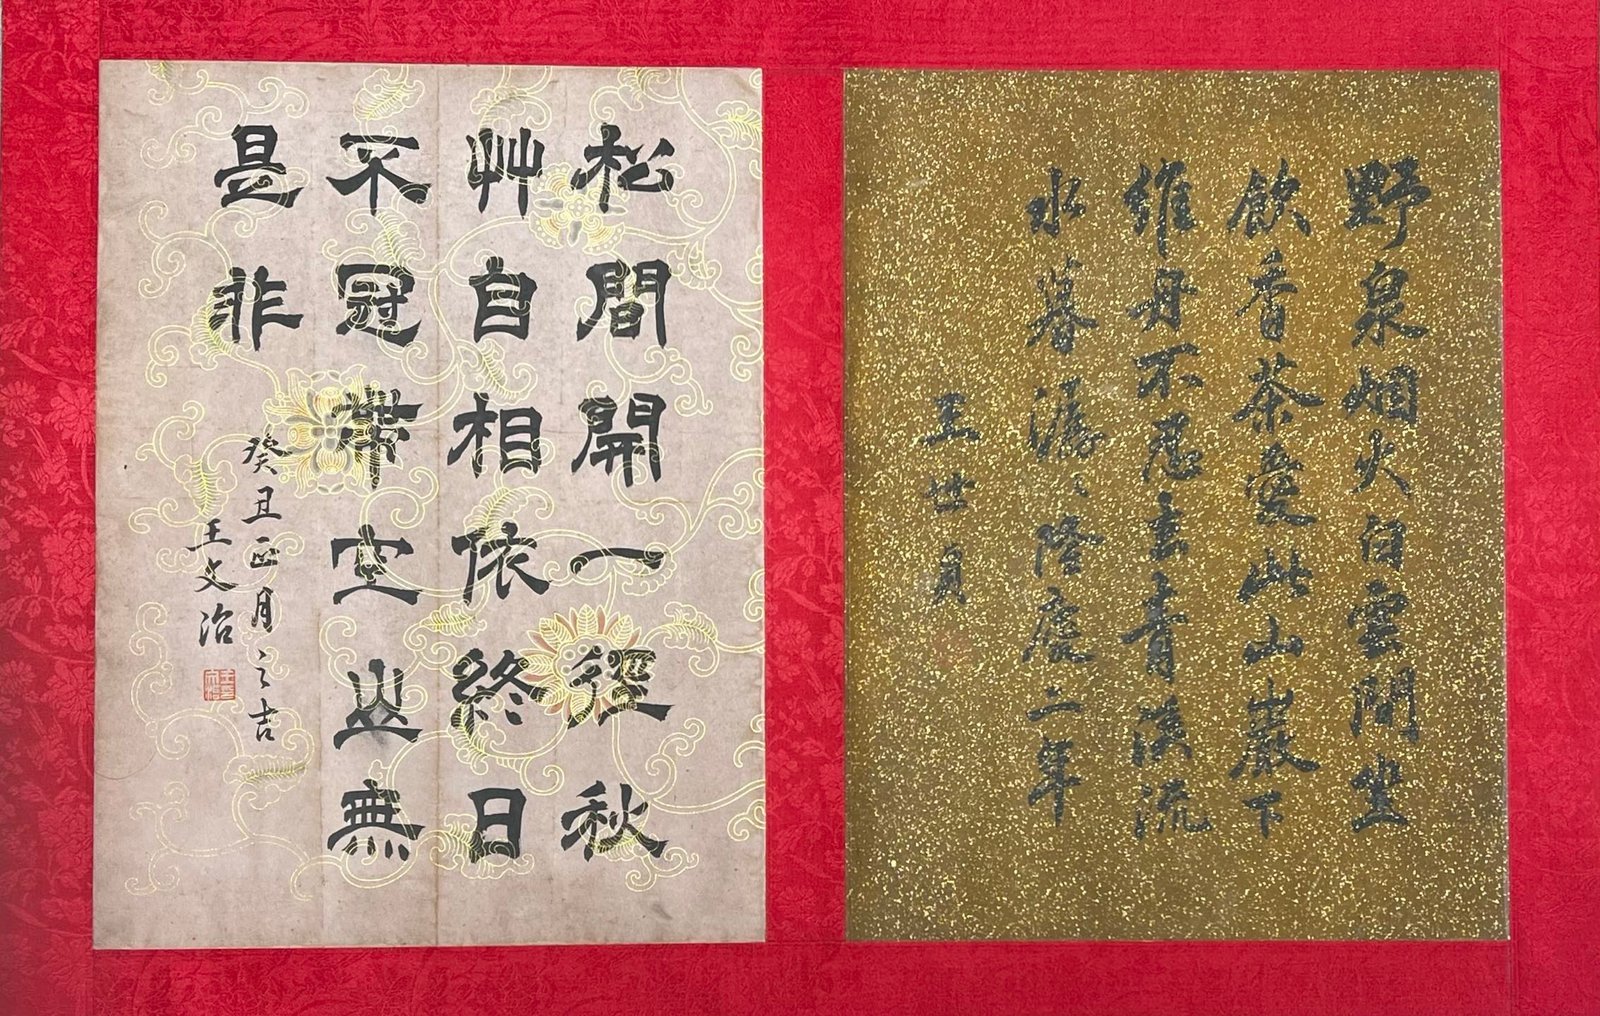 野泉烟火白雲間坐
飲香茶愛此山巖下
維舟不忍去青溪流
水暮潺〻隆慶二年
王世貞
松間開一徑秋
艸自相依終日
不冠帶空山無
是非
癸丑正月之吉
王文治